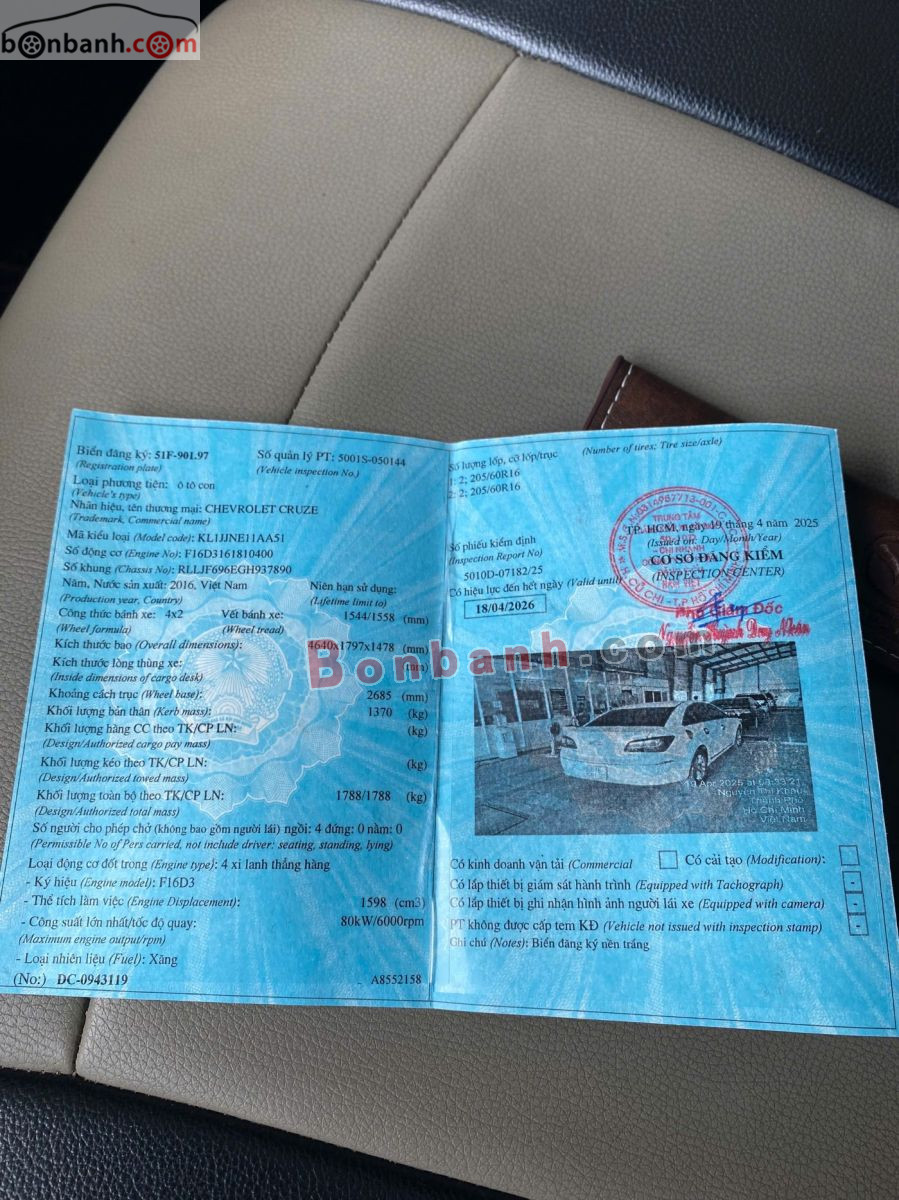 bonbanh.com
Biển đăng ký: 51F-901.97
(Registration plate)
Số quản lý PT: 5001S-050144
(Vehicle inspection No.)
Loại phương tiện: ô tô con
(Vehicle's type)
Nhãn hiệu, tên thương mại: CHEVROLET CRUZE
(Trademark, Commercial name)
Mã kiểu loại (Model code): KL1JJNE11AA51
Số động cơ (Engine No): F16D3161810400
Số khung (Chassis No): RLLJF696EGH937890
Năm, Nước sản xuất: 2016, Việt Nam
(Production year, Country)
Niên hạn sử dụng:
(Lifetime limit to)
Công thức bánh xe: 4x2
(Wheel formula)
Vết bánh xe: 1544/1558 (mm)
(Wheel tread)
Kích thước bao (Overall dimensions): 4640x1797x1478 (mm)
Kích thước lòng thùng xe: (mm)
(Inside dimensions of cargo desk)
Khoảng cách trục (Wheel base): 2685 (mm)
Khối lượng bản thân (Kerb mass): 1370 (kg)
Khối lượng hàng CC theo TK/CP LN: (kg)
(Design/Authorized cargo pay mass)
Khối lượng kéo theo TK/CP LN: (kg)
(Design/Authorized towed mass)
Khối lượng toàn bộ theo TK/CP LN: 1788/1788 (kg)
(Design/Authorized total mass)
Số người cho phép chở (không bao gồm người lái) ngồi: 4 đứng: 0 nằm: 0
(Permissible No of Pers carried, not include driver: seating, standing, lying)
Loại động cơ đốt trong (Engine type): 4 xi lanh thẳng hàng
- Ký hiệu (Engine model): F16D3
- Thể tích làm việc (Engine Displacement): 1598 (cm3)
- Công suất lớn nhất/tốc độ quay: 80kW/6000rpm
(Maximum engine output/rpm)
- Loại nhiên liệu (Fuel): Xăng
(No:) DC-0943119
A8552158
Số lượng lốp, cỡ lốp/trục (Number of tires; Tire size/axle)
1: 2; 205/60R16
2: 2; 205/60R16
Số phiếu kiểm định
(Inspection Report No)
5010D-07182/25
Có hiệu lực đến hết ngày (Valid until)
18/04/2026
TP. HCM, ngày 19 tháng 4 năm 2025
(Issued on: Day/Month/Year)
CƠ SỞ ĐĂNG KIỂM
(INSPECTION CENTER)
TRUNG TÂM
CHI NHÁNH
CỦ CHI - T.P HỒ CHÍ MINH
Phó Giám Đốc
Bonbanh.com
19 Apr 2025
Thành Phố
Hồ Chí Minh
Việt Nam
Có kinh doanh vận tải (Commercial
Có cải tạo (Modification):
Có lắp thiết bị giám sát hành trình (Equipped with Tachograph) -
Có lắp thiết bị ghi nhận hình ảnh người lái xe (Equipped with camera) -
PT không được cấp tem KĐ (Vehicle not issued with inspection stamp) -
Ghi chú (Notes): Biển đăng ký nền trắng